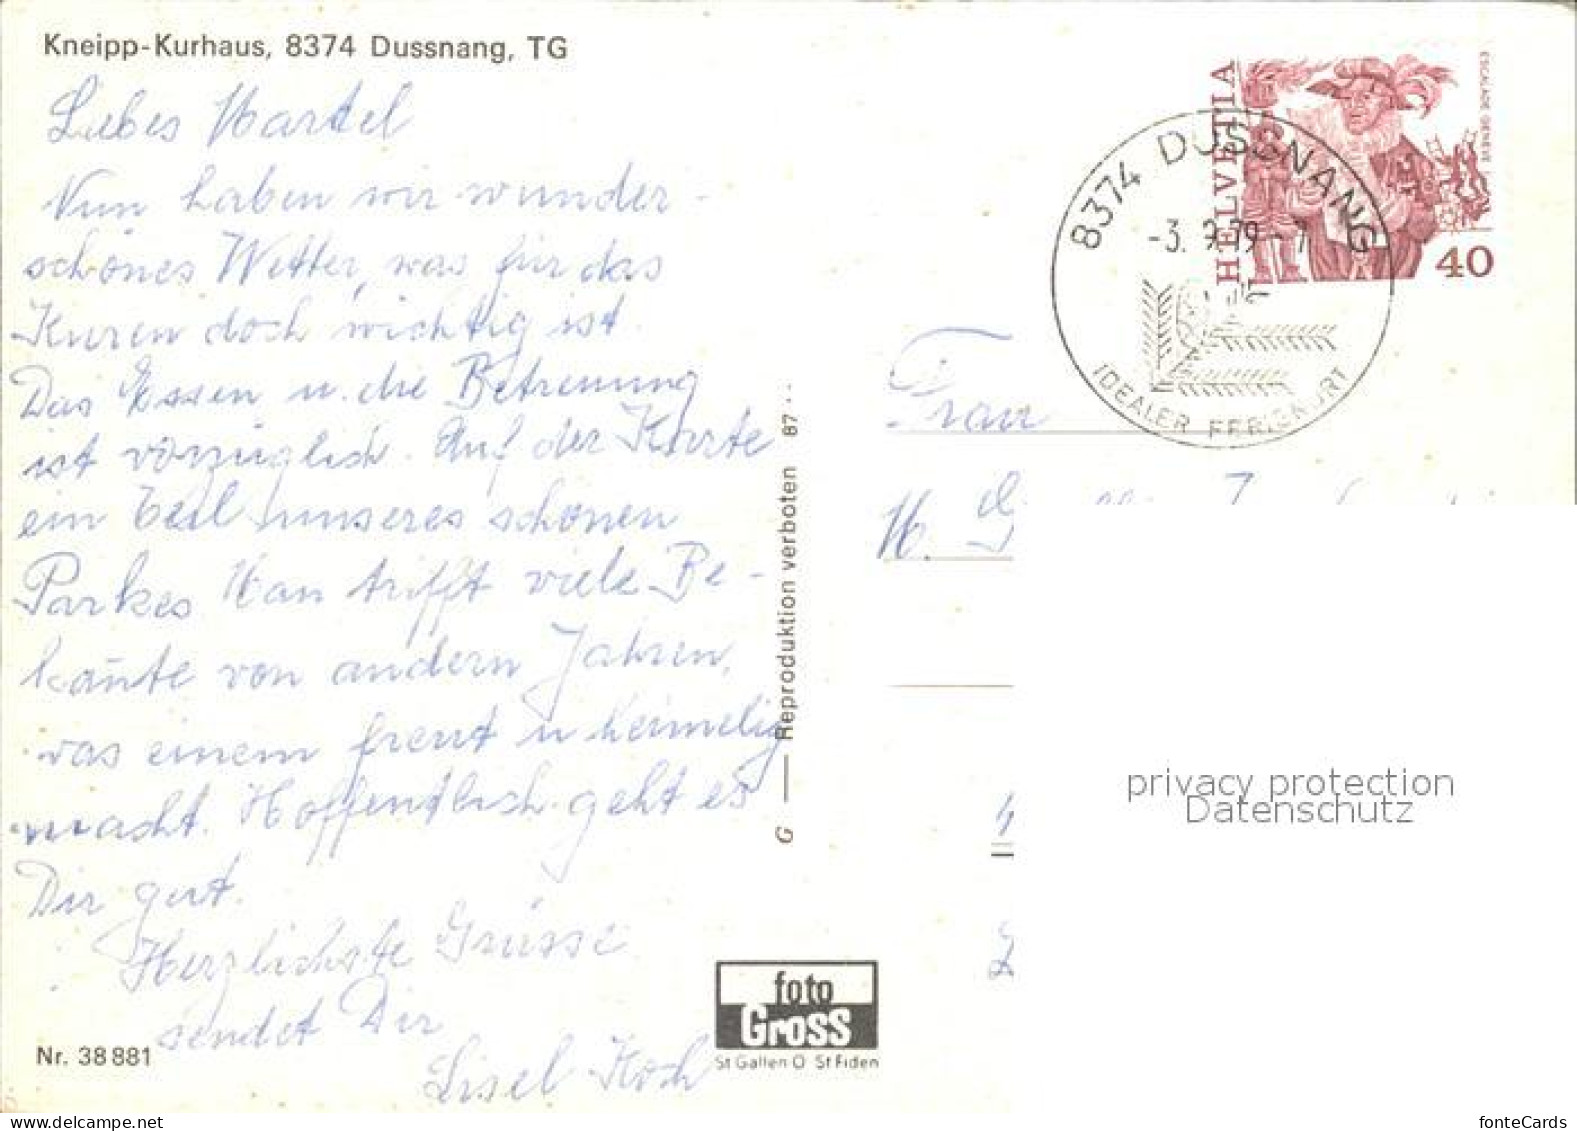 Kneipp-Kurhaus, 8374 Dussnang, TG
Liebes Martel
Nun haben wir wunder-
schönes Wetter, was für das
Kuren doch wichtig ist.
Das Essen u. die Betreuung
ist vorzüglich. Auf der Karte
ein Teil unseres schönen
Parkes Man trifft viele Be-
kannte von andern Jahren,
was einem freut u heimelig
macht. Hoffentlich geht es
Dir gut.
Herzlichste Grüsse
sendet Dir
Lisel Koch
Nr. 38 881
G — Reproduktion verboten 87 ··
foto
Gross
St Gallen O St Fiden
HELVETIA
ESCALADE GENEVE
40
8374 DUSSNANG
-3. 9.79-7
IDEALER FERIENORT
Frau
M. G
privacy protection
Datenschutz
fonteCards